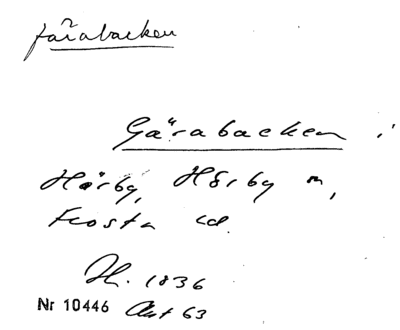 järabacken
Gärabacken i
Hörby, Hörby sn,
Frosta hd.
H. 1836
Nr 10446 Akt 63